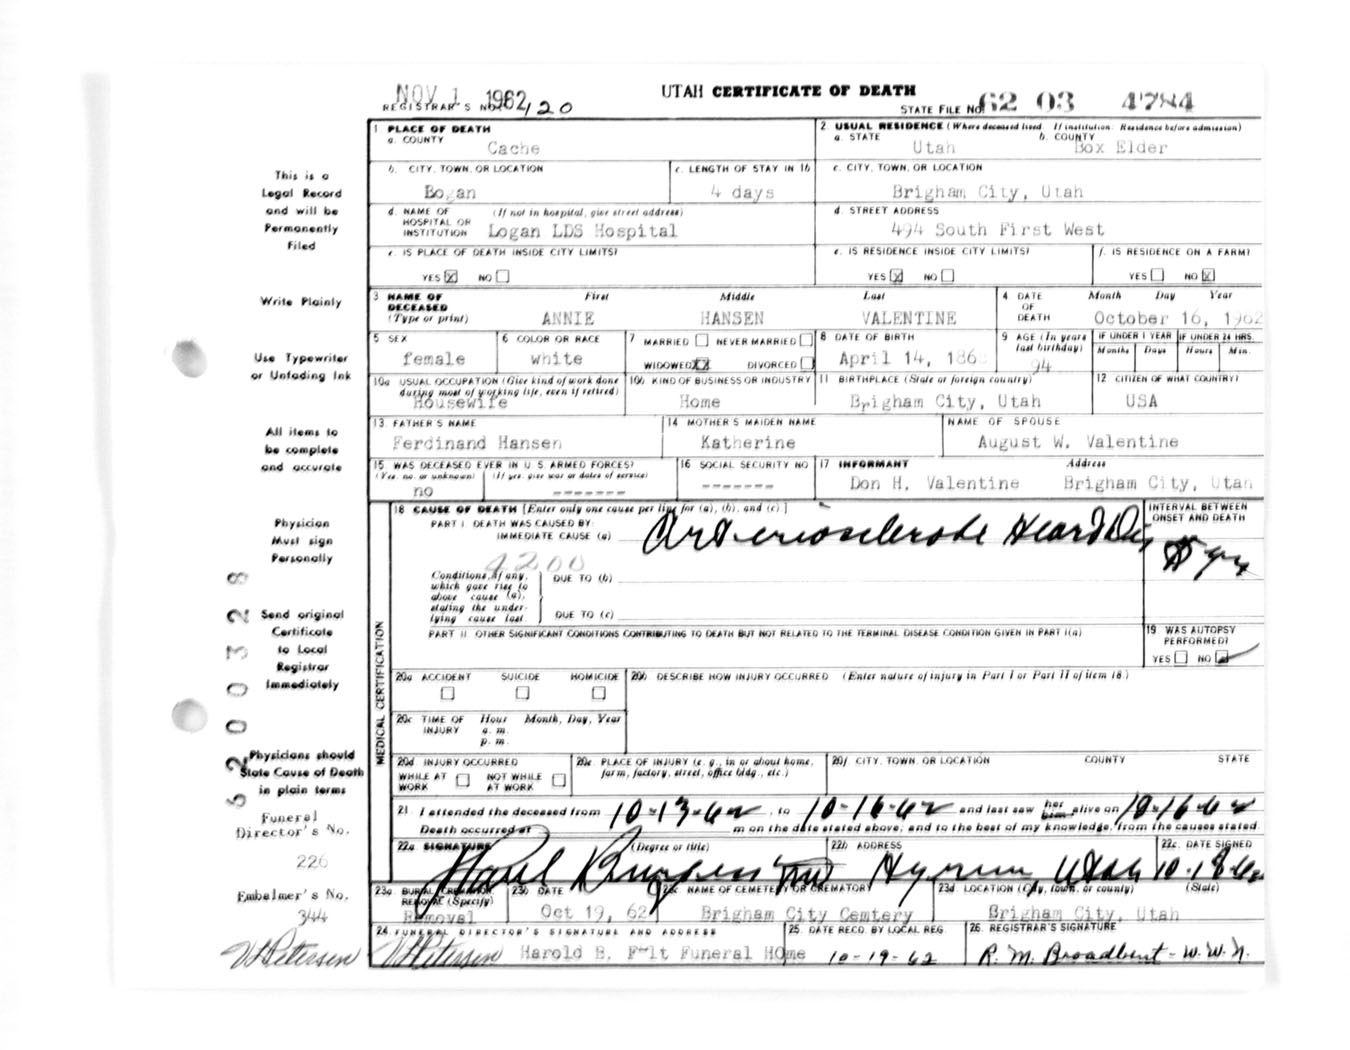 NOV 1 1962
REGISTRAR'S NO. 120
UTAH CERTIFICATE OF DEATH
STATE FILE NO. 62 03 4784
This is a
Legal Record
and will be
Permanently
Filed
Write Plainly
Use Typewriter
or Unfading Ink
All items to
be complete
and accurate
Physician
Must sign
Personally
Send original
Certificate
to Local
Registrar
Immediately
Physicians should
State Cause of Death
in plain terms
Funeral
Director's No.
226
Embalmer's No.
344
V L Petersen
1 PLACE OF DEATH
a. COUNTY
Cache
2. USUAL RESIDENCE (Where deceased lived. If institution: Residence before admission)
a. STATE b. COUNTY
Utah Box Elder
b. CITY, TOWN, OR LOCATION
Bogan
c. LENGTH OF STAY IN 1b
4 days
c. CITY, TOWN, OR LOCATION
Brigham City, Utah
d. NAME OF (If not in hospital, give street address)
HOSPITAL OR
INSTITUTION Logan LDS Hospital
d. STREET ADDRESS
494 South First West
e. IS PLACE OF DEATH INSIDE CITY LIMITS?
YES X NO
e. IS RESIDENCE INSIDE CITY LIMITS?
YES X NO
f. IS RESIDENCE ON A FARM?
YES NO X
3 NAME OF First Middle Last
DECEASED
(Type or print) ANNIE HANSEN VALENTINE
4 DATE Month Day Year
OF
DEATH October 16, 1962
5 SEX
female
6 COLOR OR RACE
white
7 MARRIED NEVER MARRIED
WIDOWED XX DIVORCED
8 DATE OF BIRTH
April 14, 186
9 AGE (In years
last birthday)
94
IF UNDER 1 YEAR IF UNDER 24 HRS.
Months Days Hours Min.
10a USUAL OCCUPATION (Give kind of work done
during most of working life, even if retired)
Housewife
10b KIND OF BUSINESS OR INDUSTRY
Home
11 BIRTHPLACE (State or foreign country)
Brigham City, Utah
12 CITIZEN OF WHAT COUNTRY?
USA
13. FATHER'S NAME
Ferdinand Hansen
14 MOTHER'S MAIDEN NAME
Katherine
NAME OF SPOUSE
August W. Valentine
15 WAS DECEASED EVER IN U.S. ARMED FORCES?
(Yes, no, or unknown) (If yes, give war or dates of service)
no -------
16 SOCIAL SECURITY NO
-------
17 INFORMANT Address
Don H. Valentine Brigham City, Utah
MEDICAL CERTIFICATION
18 CAUSE OF DEATH [Enter only one cause per line for (a), (b), and (c).]
PART I. DEATH WAS CAUSED BY:
IMMEDIATE CAUSE (a) Arteriosclerotic Heart Dis
INTERVAL BETWEEN
ONSET AND DEATH
4200
Conditions, if any,
which gave rise to
above cause (a),
stating the under-
lying cause last
DUE TO (b)
DUE TO (c)
PART II OTHER SIGNIFICANT CONDITIONS CONTRIBUTING TO DEATH BUT NOT RELATED TO THE TERMINAL DISEASE CONDITION GIVEN IN PART I(a)
19 WAS AUTOPSY
PERFORMED?
YES NO
20a ACCIDENT SUICIDE HOMICIDE
20b DESCRIBE HOW INJURY OCCURRED (Enter nature of injury in Part I or Part II of item 18.)
20c TIME OF Hour Month, Day, Year
INJURY a. m.
p. m.
20d INJURY OCCURRED
WHILE AT NOT WHILE
WORK AT WORK
20e. PLACE OF INJURY (e. g., in or about home,
farm, factory, street, office bldg., etc.)
20f. CITY, TOWN, OR LOCATION COUNTY STATE
21. I attended the deceased from 10-13-62, to 10-16-62 and last saw her him alive on 10-16-62
Death occurred at m on the date stated above; and to the best of my knowledge, from the causes stated
22a SIGNATURE (Degree or title)
Paul Burgess MD
22b ADDRESS
Hyrum, Utah
22c. DATE SIGNED
10-18-62
23a BURIAL, CREMATION,
REMOVAL (Specify)
Removal
23b DATE
Oct 19, 62
23c NAME OF CEMETERY OR CREMATORY
Brigham City Cemtery
23d. LOCATION (City, town, or county) (State)
Brigham City, Utah
24. FUNERAL DIRECTOR'S SIGNATURE AND ADDRESS
V L Petersen Harold B. F-lt Funeral HOme
25. DATE RECD. BY LOCAL REG.
10-19-62
26. REGISTRAR'S SIGNATURE
R. M. Broadbent - W. W. N.